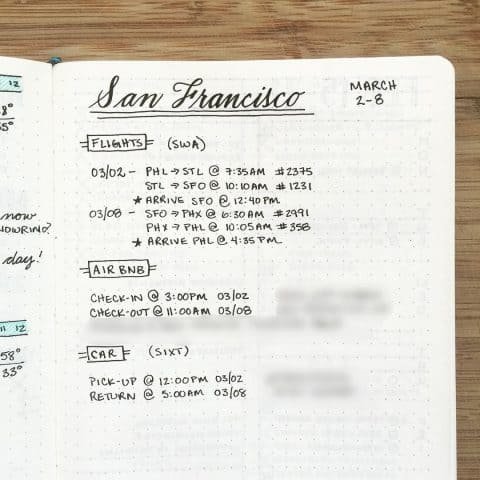 San Francisco
MARCH
2-8
FLIGHTS (SWA)
03/02 - PHL → STL @ 7:35AM #2375
STL → SFO @ 10:10AM #1231
★ ARRIVE SFO @ 12:40PM
03/08 - SFO → PHX @ 6:30AM #2991
PHX → PHL @ 10:05AM #358
★ ARRIVE PHL @ 4:35PM
AIR BNB
CHECK-IN @ 3:00PM 03/02
CHECK-OUT @ 11:00AM 03/08
CAR (SIXT)
PICK-UP @ 12:00PM 03/02
RETURN @ 5:00AM 03/08
12
8°
55°
now
day!
11 12
58°
33°